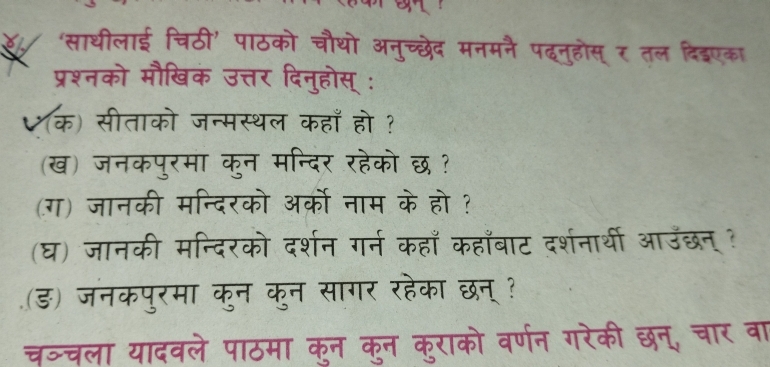 ४. 'साथीलाई चिठी' पाठको चौथो अनुच्छेद मनमनै पढ्नुहोस् र तल दिइएका
प्रश्नको मौखिक उत्तर दिनुहोस् :
(क) सीताको जन्मस्थल कहाँ हो ?
(ख) जनकपुरमा कुन मन्दिर रहेको छ ?
(ग) जानकी मन्दिरको अर्को नाम के हो ?
(घ) जानकी मन्दिरको दर्शन गर्न कहाँ कहाँबाट दर्शनार्थी आउँछन् ?
(ङ) जनकपुरमा कुन कुन सागर रहेका छन् ?
चञ्चला यादवले पाठमा कुन कुन कुराको वर्णन गरेकी छन्, चार वा